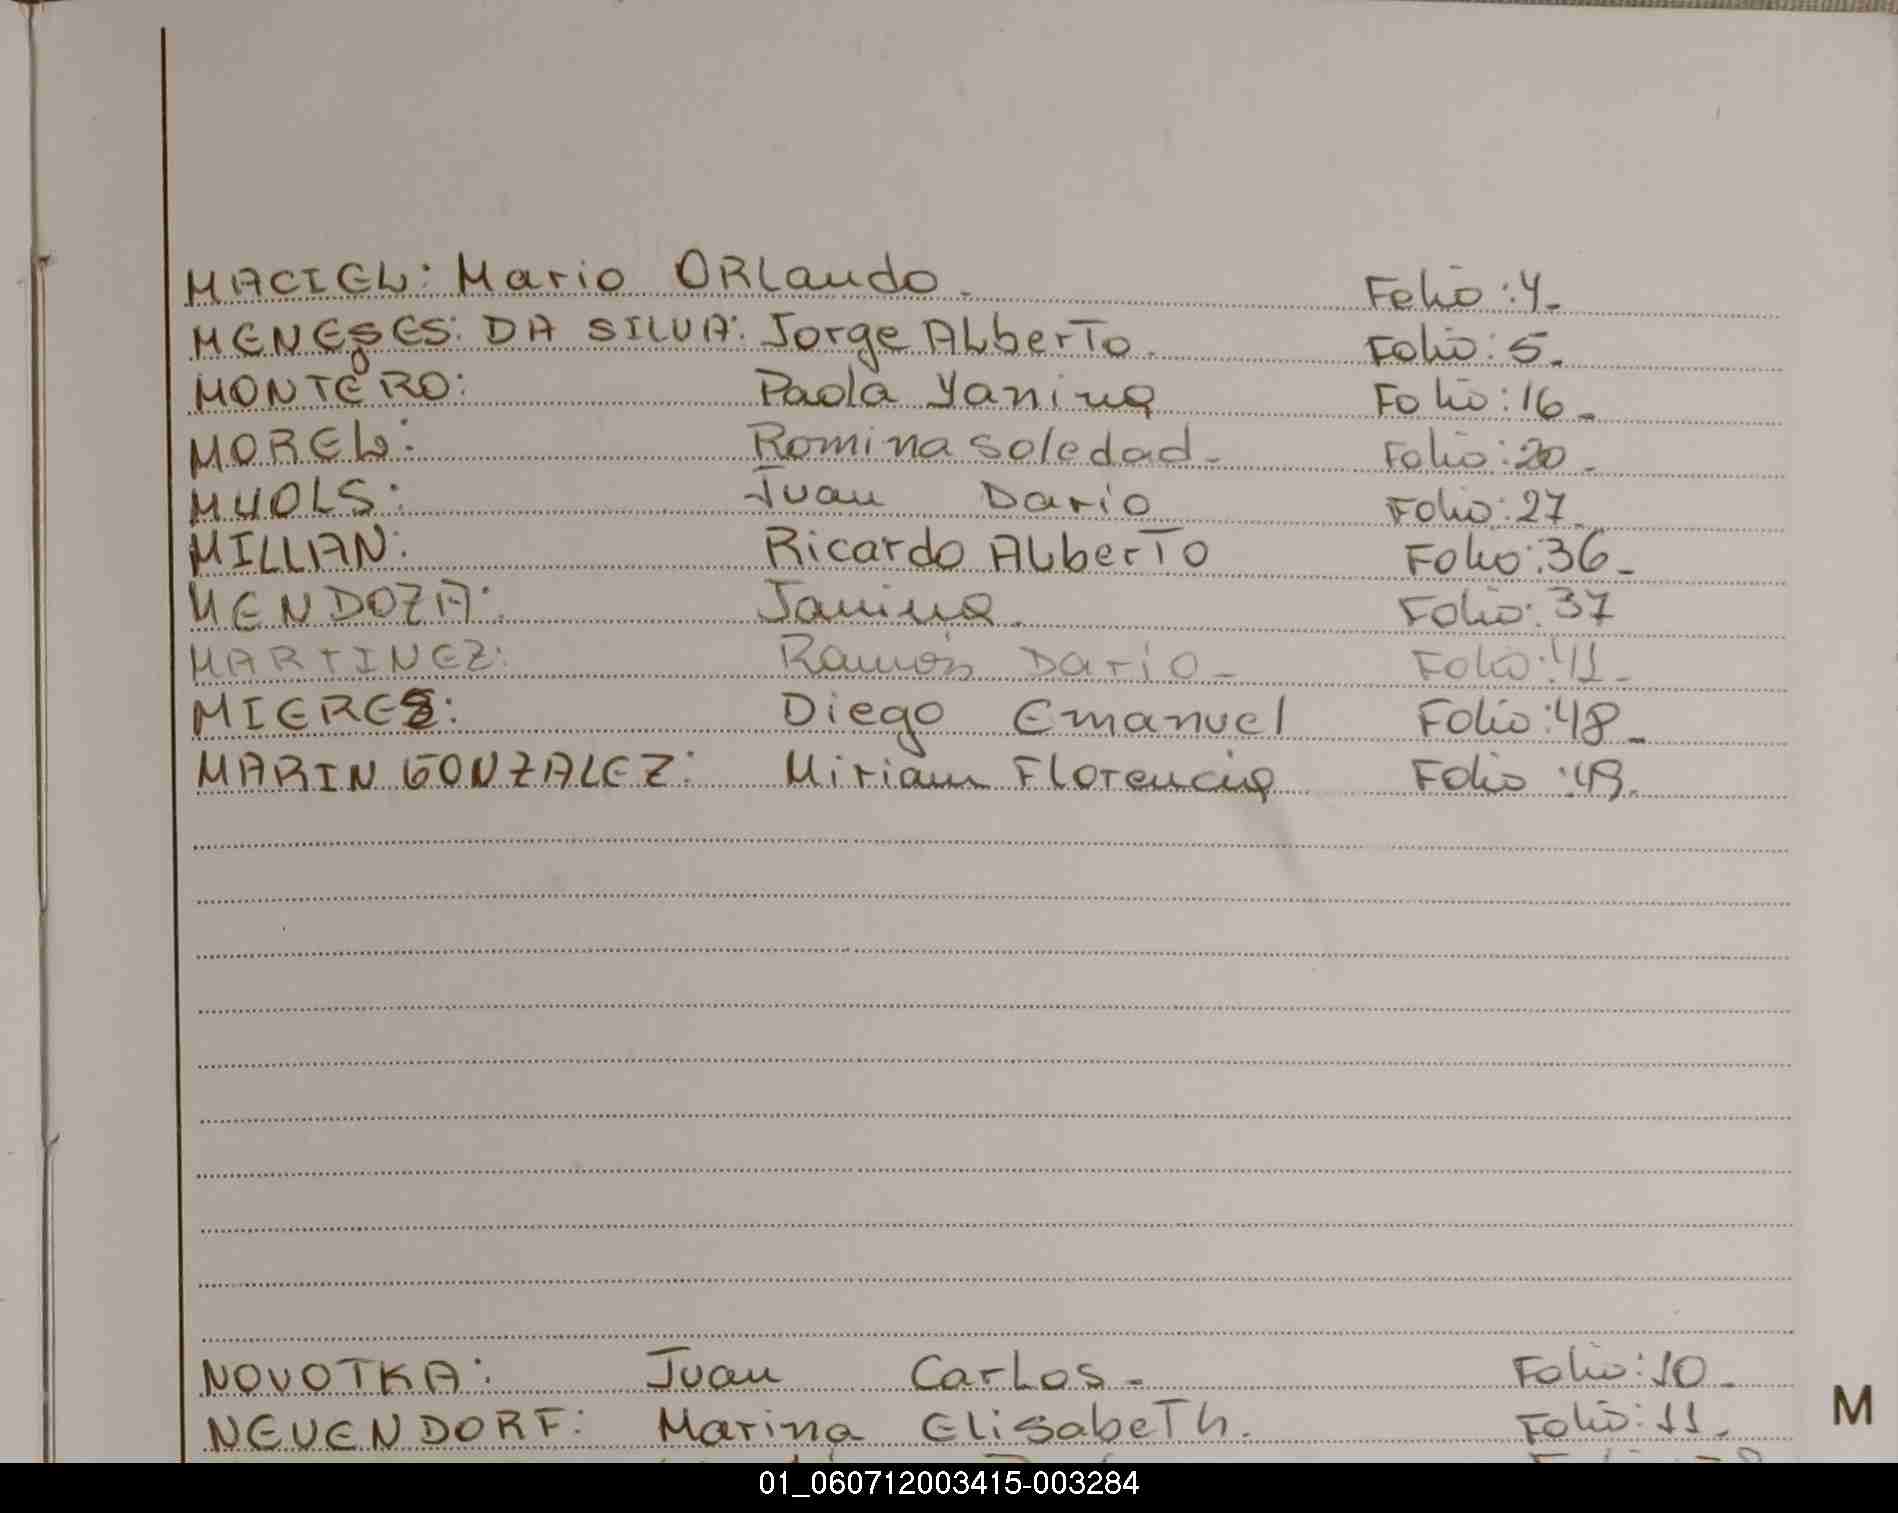 MACIEL: Mario ORLando. Folio: 4.
MENESES: DA SILVA: Jorge ALberTo. Folio: 5.
MONTERO: Paola Yanina Folio: 16-
MOREL: Romina Soledad- Folio: 20-
MUOLS: Juan Dario Folio: 27
MILLAN: Ricardo ALberTo Folio: 36-
MENDOZA: Janina. Folio: 37
MARTINEZ: Ramón Dario- Folio: 41-
MIERES: Diego Emanuel Folio: 48-
MARIN GONZALEZ: Miriam Florencia Folio: 49.
NOVOTKA: Juan CarLos- Folio: 10-
NEUENDORF: Marina ELisabeTh. Folio: 11-
M
01_060712003415-003284